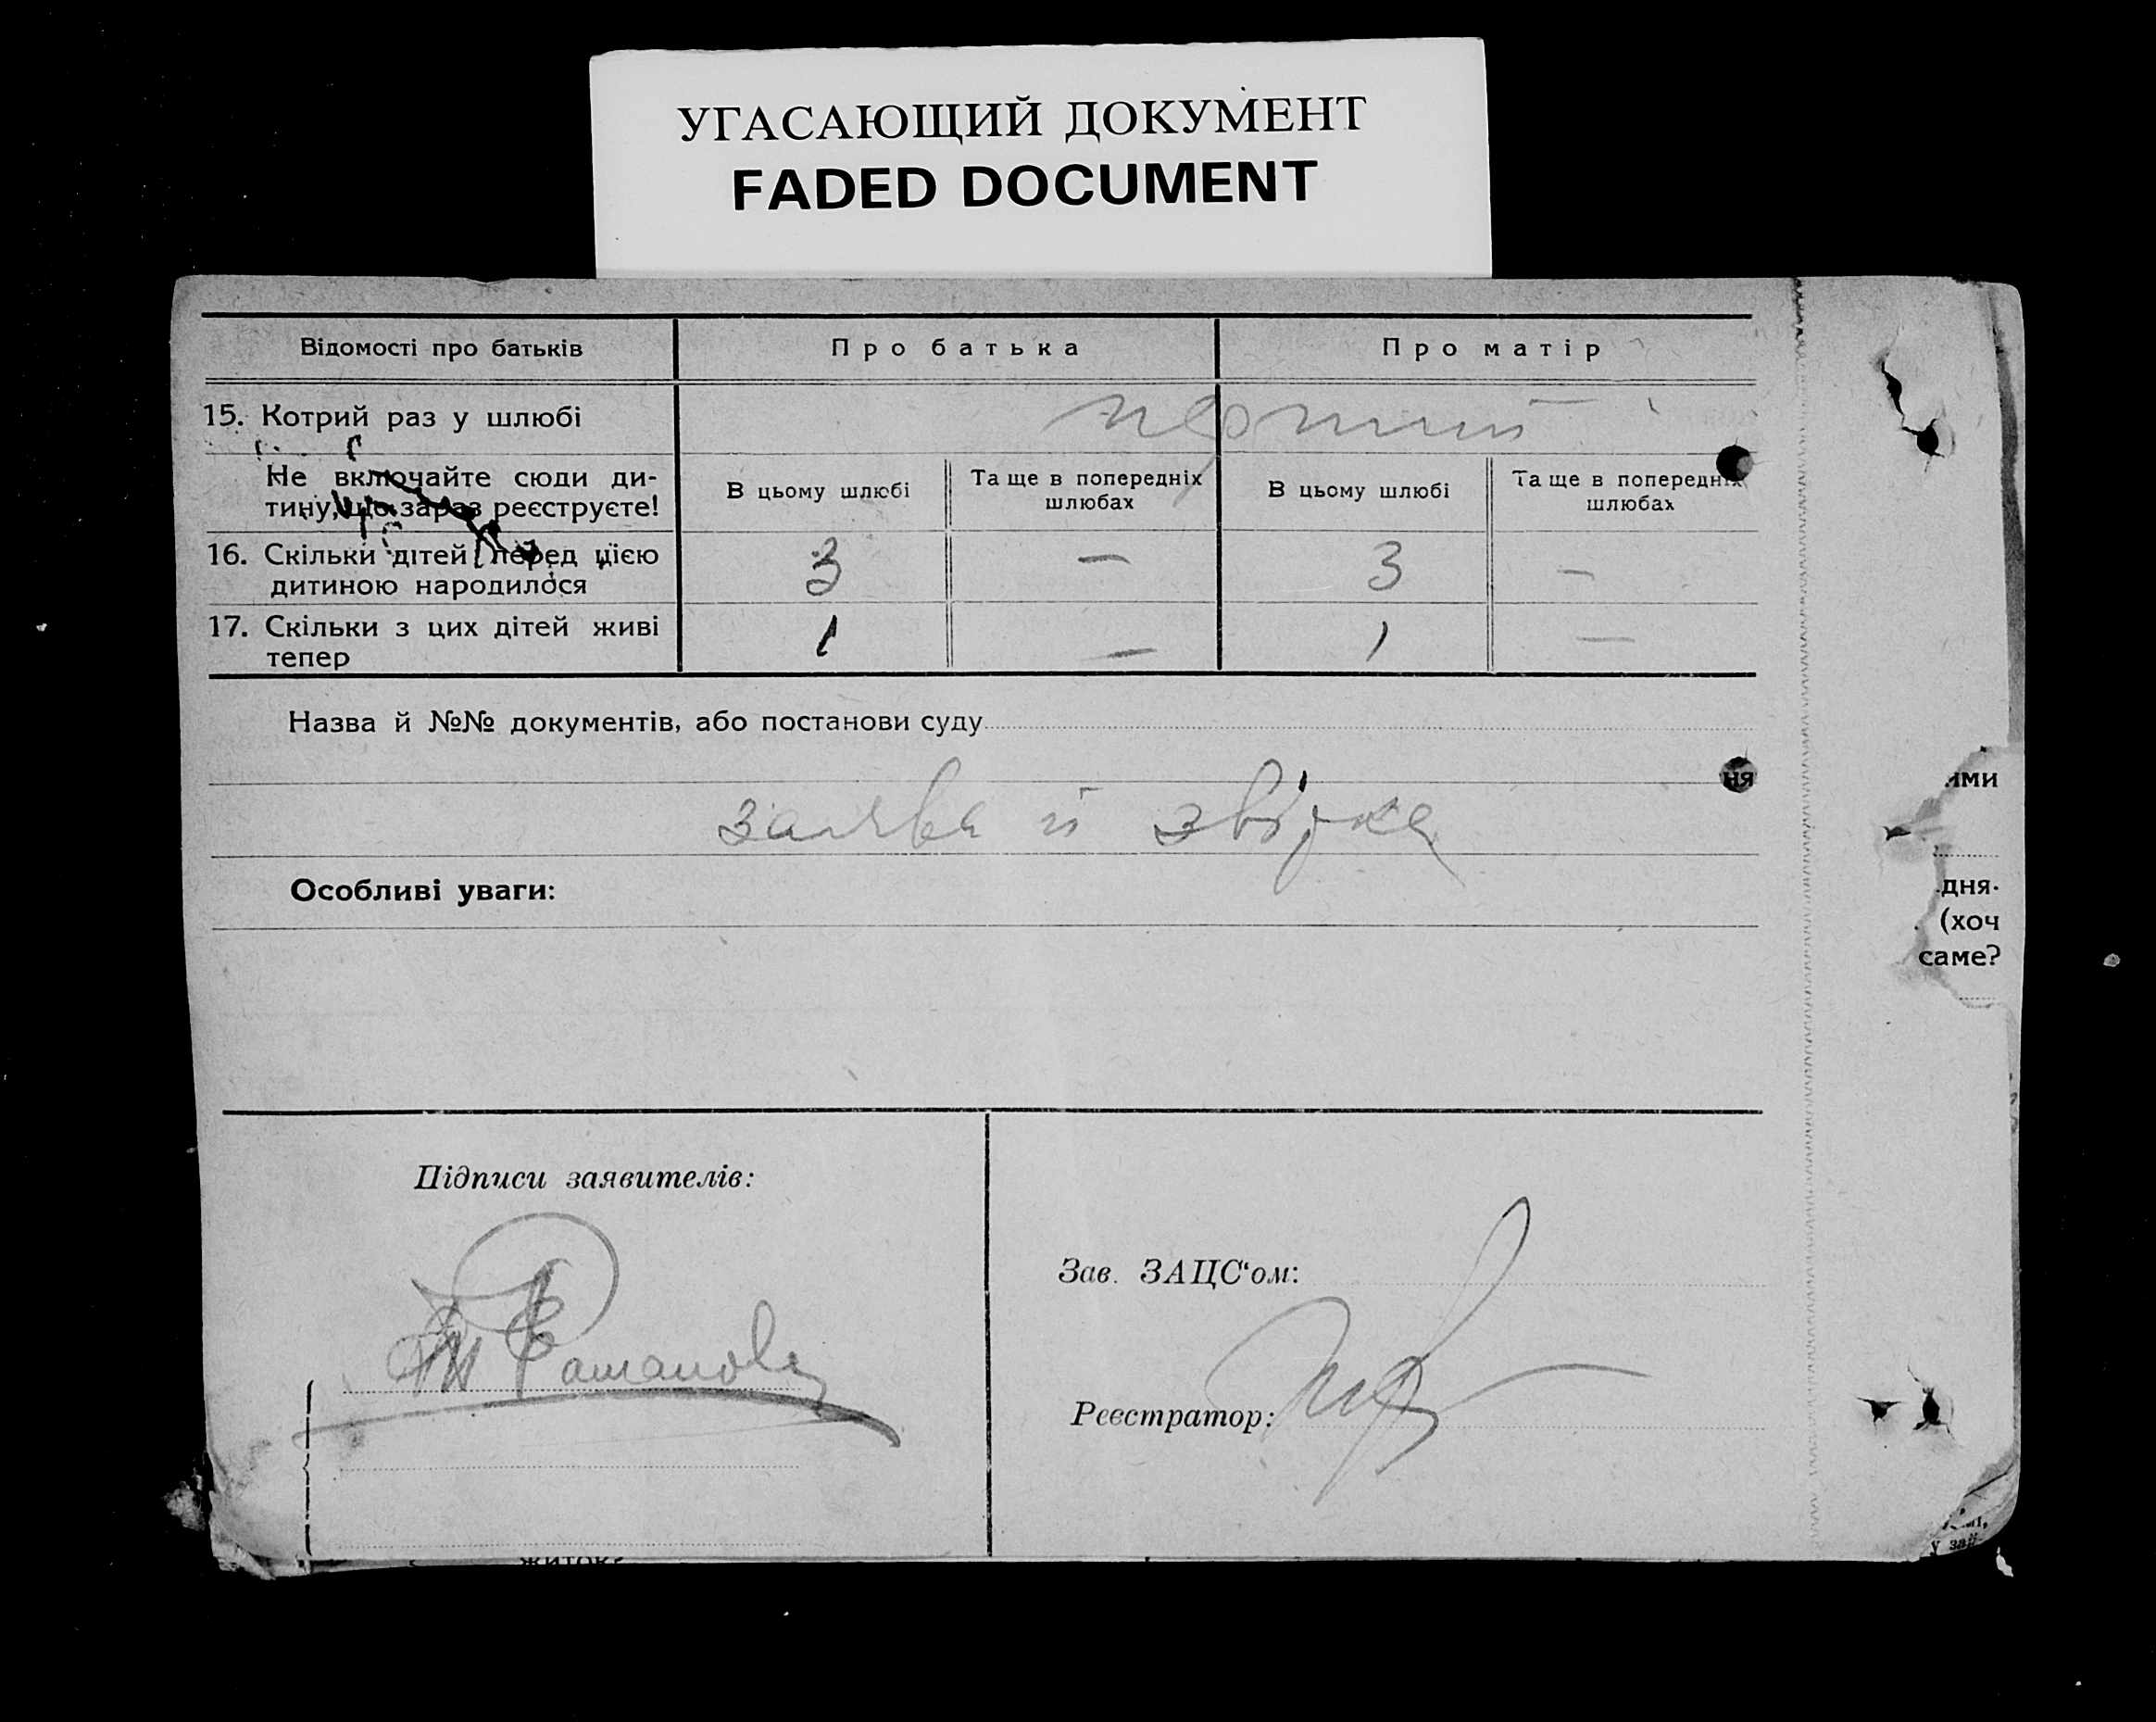 УГАСАЮЩИЙ ДОКУМЕНТ
FADED DOCUMENT
Відомості про батьків
Про батька
Про матір
15. Котрий раз у шлюбі
перший
Не включайте сюди ди-
тину, що зараз реєструєте!
В цьому шлюбі
Та ще в попередніх
шлюбах
В цьому шлюбі
Та ще в попередніх
шлюбах
16. Скільки дітей перед цією
дитиною народилося
3 — 3 —
17. Скільки з цих дітей живі
тепер
1 — 1 —
Назва й №№ документів, або постанови суду
ня
ими
заява й звірка
Особливі уваги:
дня-
(хоч
саме?
Підписи заявителів:
Зав. ЗАЦС'ом:
Реєстратор:
у